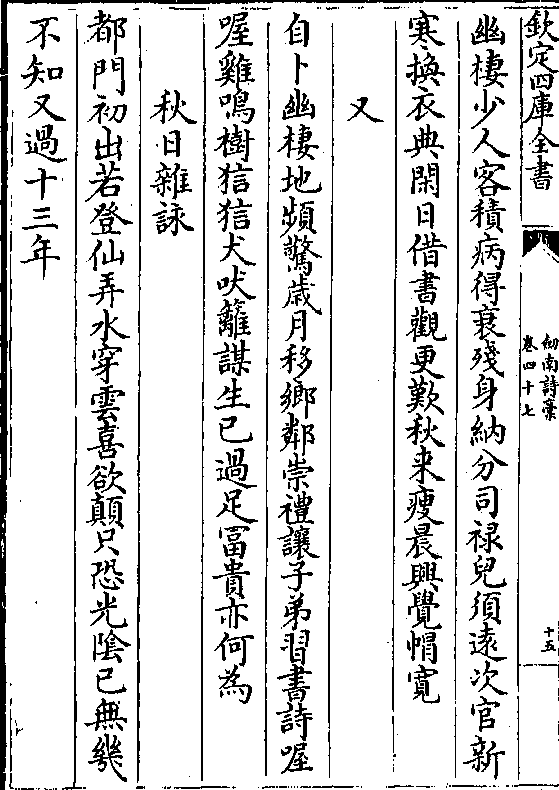 欽定四庫全書
劔南詩藁
卷四十七
十五
幽棲少人客積病得衰殘身納分司祿兒須遠次官新
寒換衣典閑日借書觀更歎秋来瘦晨興覺㡌寛
又
自卜幽棲地頻驚歲月移鄉鄰崇禮讓子弟習書詩喔
喔雞鳴樹狺狺犬吠籬謀生已過足冨貴亦何為
秋日雜詠
都門初出若登仙弄水穿雲喜欲顛只恐光隂已無幾
不知又過十三年